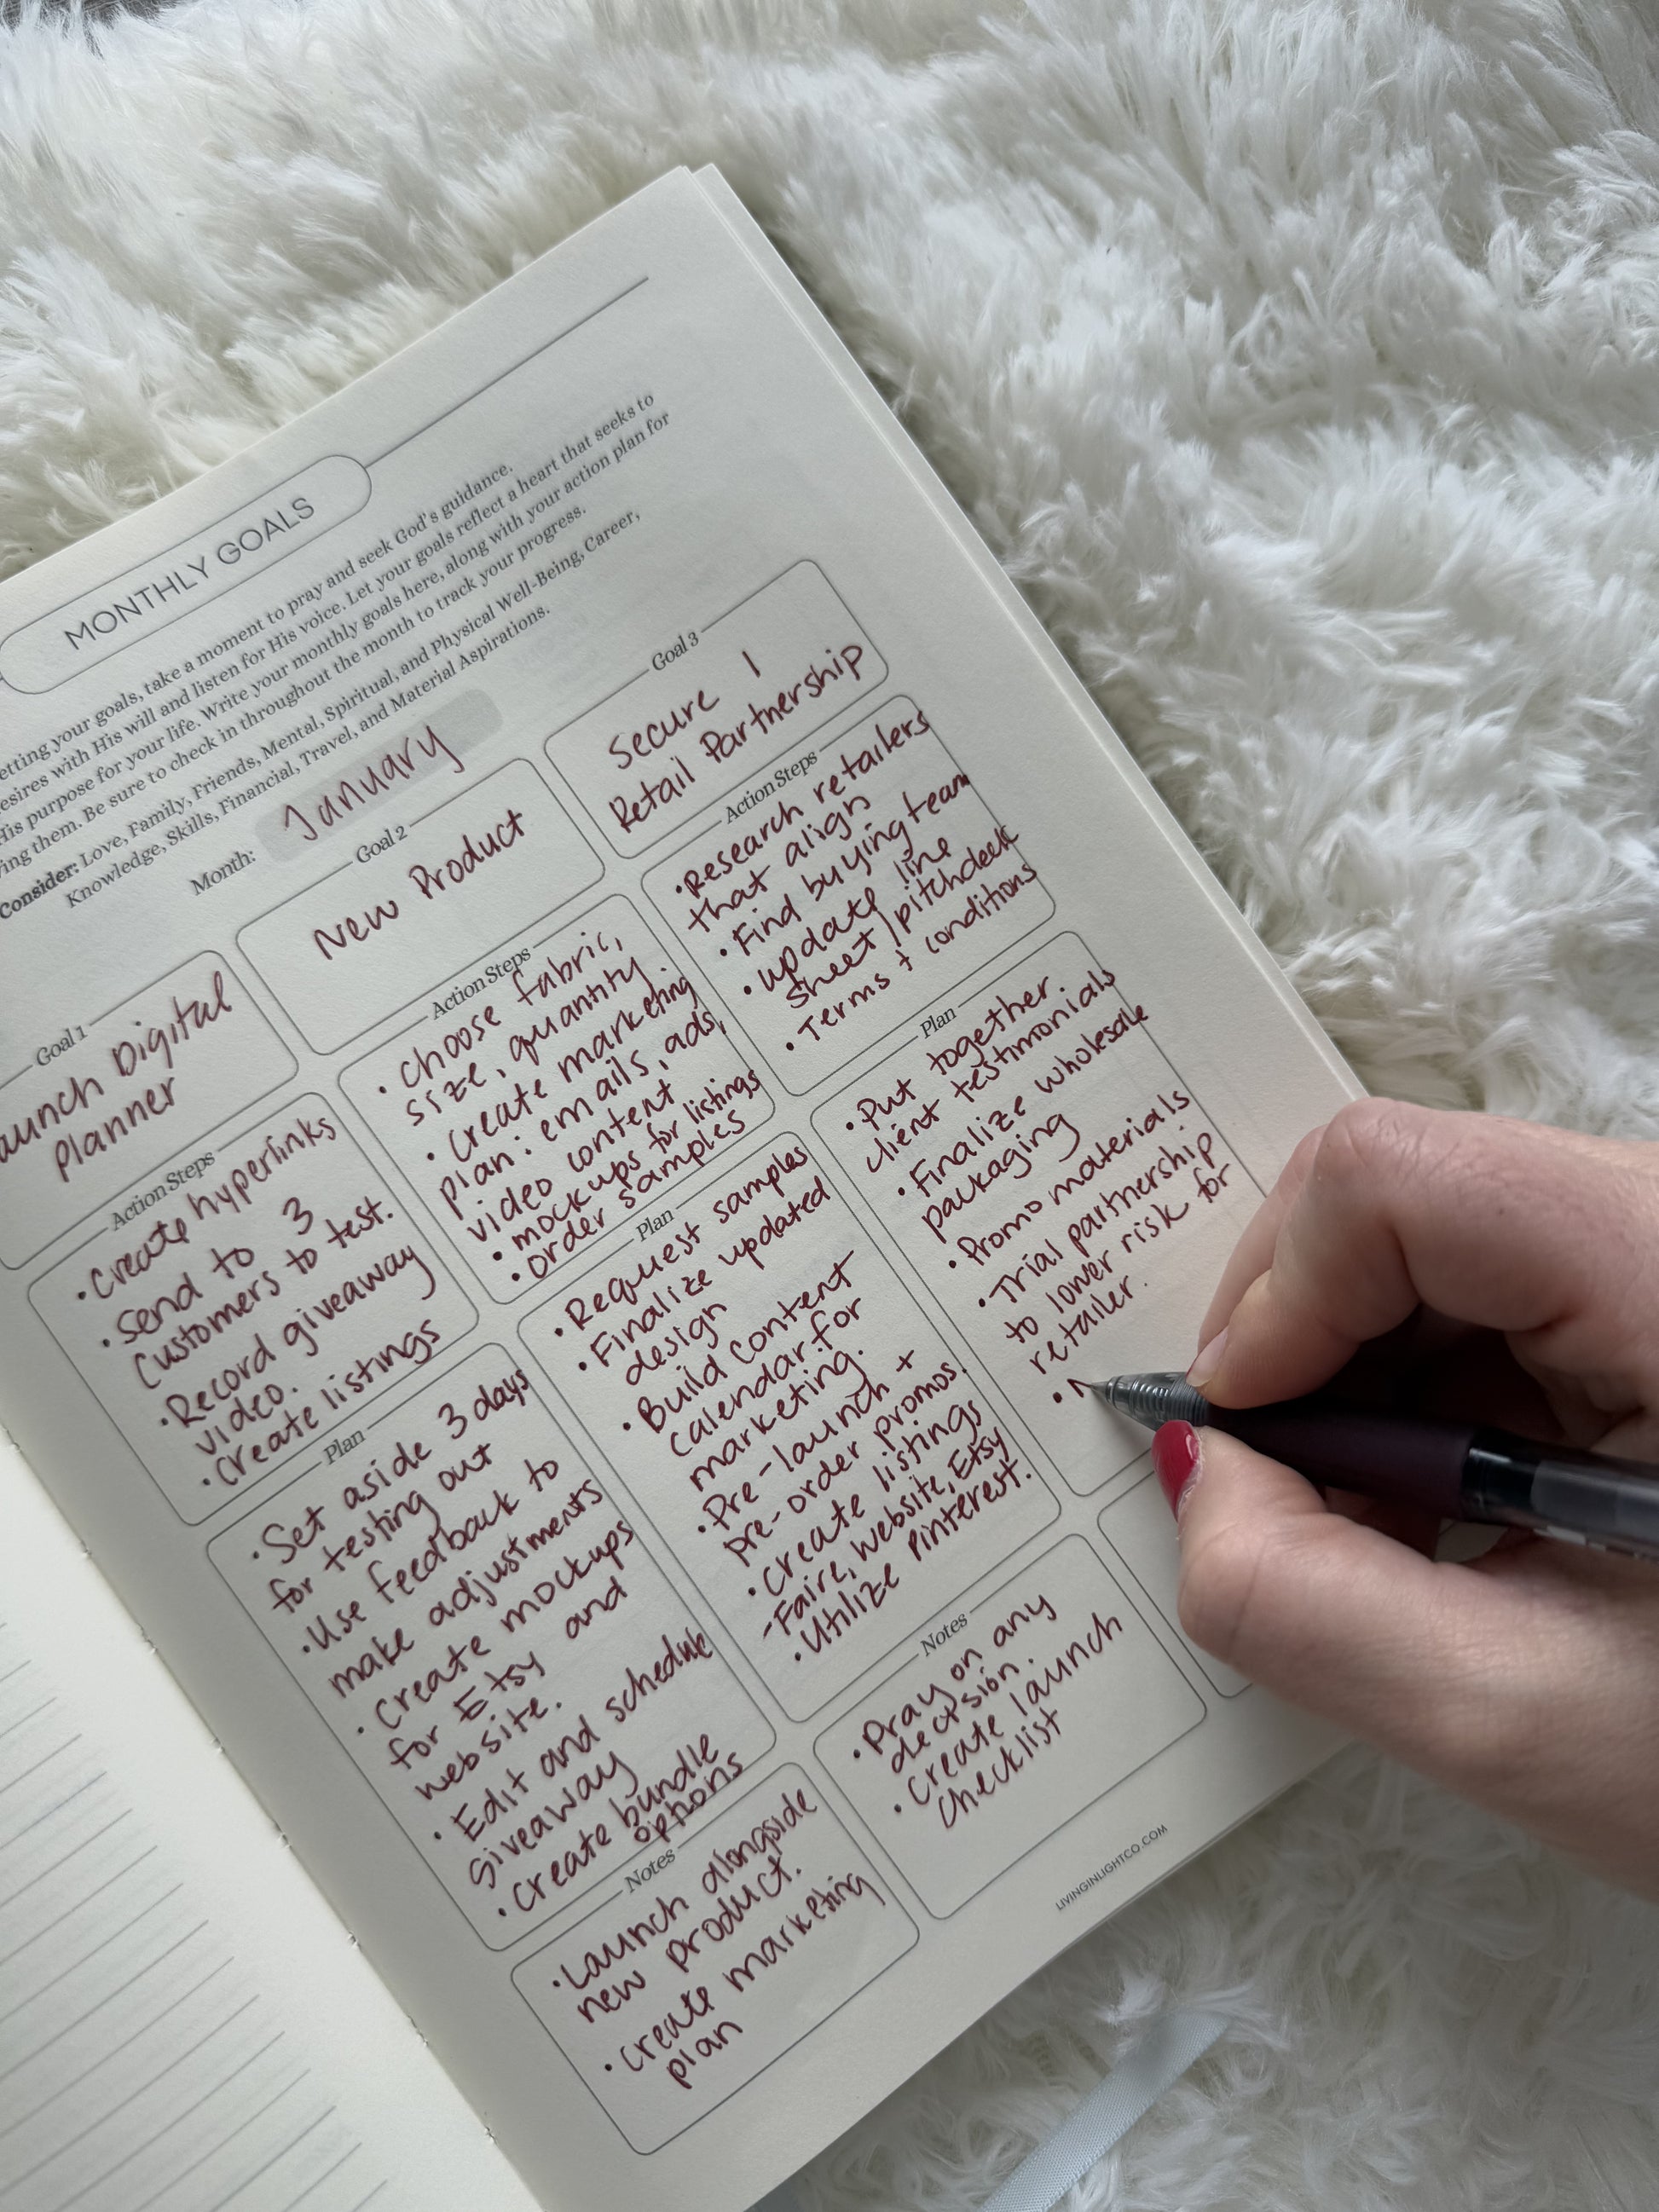 MONTHLY GOALS
etting your goals, take a moment to pray and seek God's guidance.
esires with His will and listen for His voice. Let your goals reflect a heart that seeks to
His purpose for your life. Write your monthly goals here, along with your action plan for
ing them. Be sure to check in throughout the month to track your progress.
Consider: Love, Family, Friends, Mental, Spiritual, and Physical Well-Being, Career,
Knowledge, Skills, Financial, Travel, and Material Aspirations.
Month: January
Goal 1
aunch Digital
Planner
Action Steps
• Create hyperlinks
• Send to 3
Customers to test.
• Record giveaway
video.
• Create listings
Plan
• Set aside 3 days
for testing out
• Use feedback to
make adjustments
• Create mockups
for Etsy and
website.
• Edit and schedule
giveaway
• Create bundle
options
Notes
• Launch alongside
new product.
• Create marketing
plan
Goal 2
New Product
Action Steps
• Choose fabric,
size, quantity.
• Create marketing
plan: emails, ads,
video content
• mockups for listings
• order samples
Plan
• Request samples
• Finalize updated
design
• Build content
calendar for
marketing.
• Pre-launch +
pre-order promos.
• Create listings
-Faire, website, Etsy
• Utilize Pinterest.
Notes
• Pray on any
decision.
• Create launch
checklist
Goal 3
Secure 1
Retail Partnership
Action Steps
• Research retailers
that align
• Find buying team
• update line
sheet/pitchdeck
• Terms + conditions
Plan
• Put together
client testimonials.
• Finalize wholesale
packaging
• Promo materials
• Trial partnership
to lower risk for
retailer.
•
LIVINGINLIGHTCO.COM